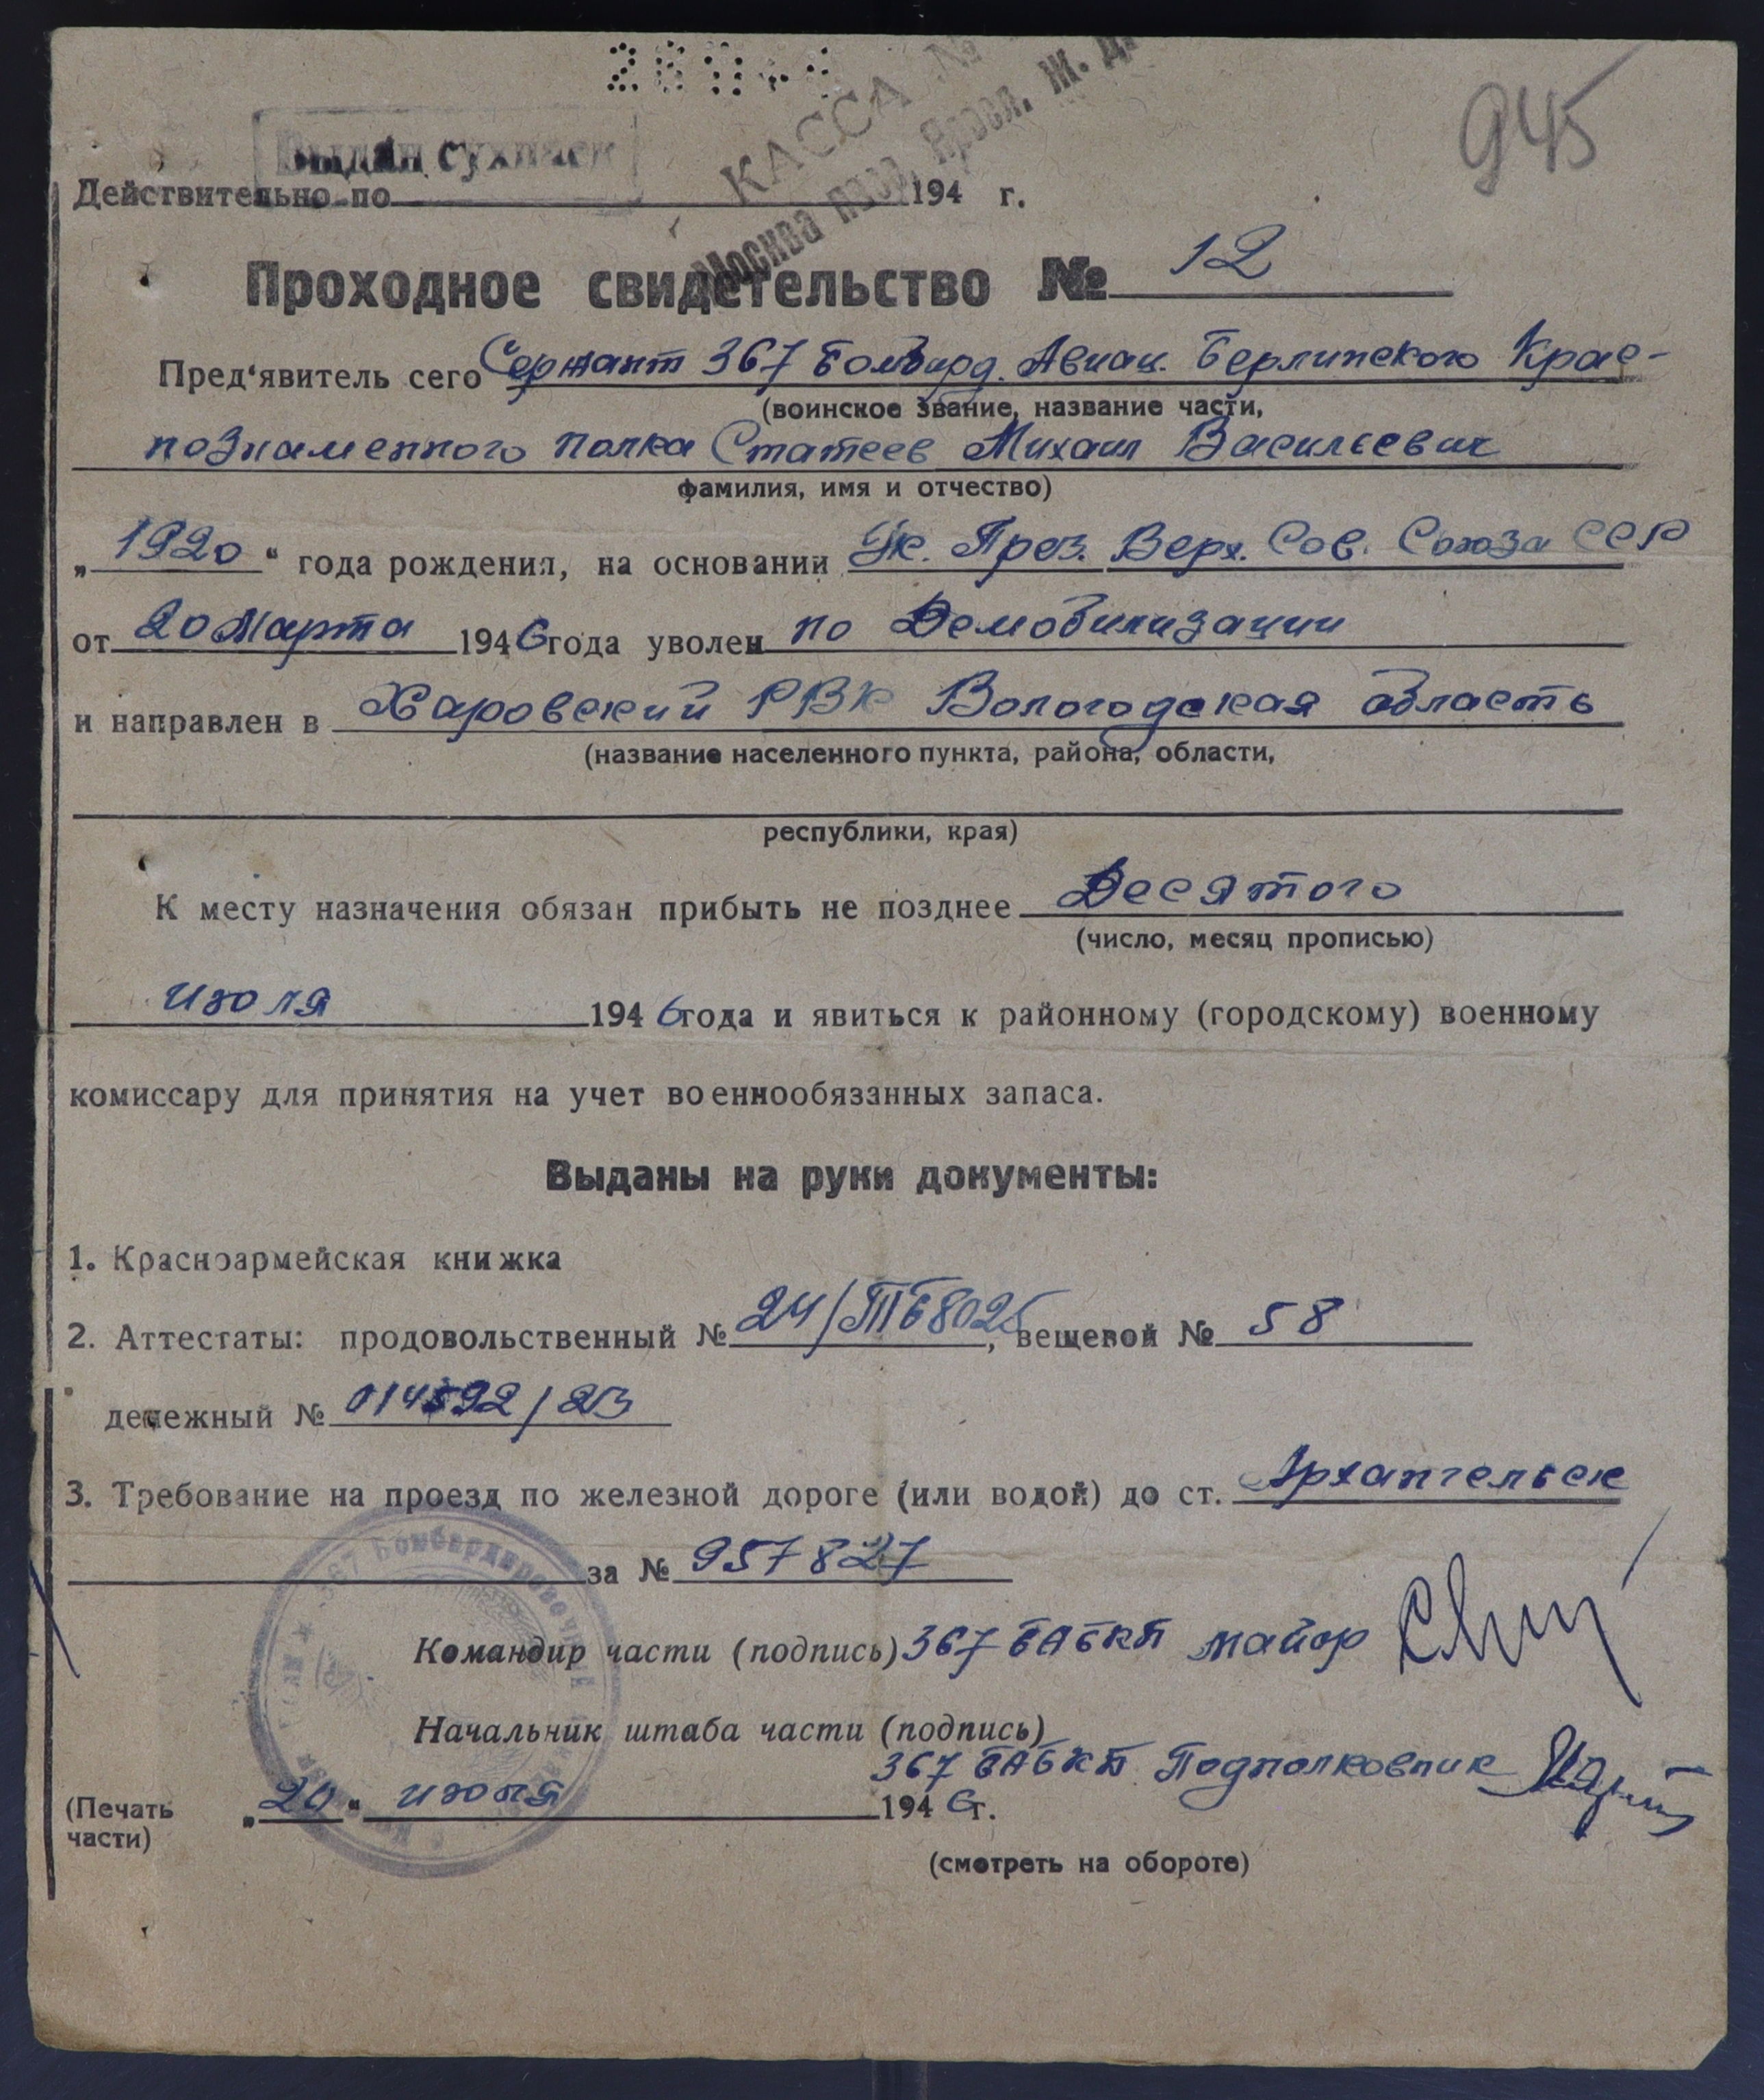 945
Выдан сухпаек
КАССА №
Москва пасс. Яросл. Ж. Д.
Действительно по 194 г.
Проходное свидетельство № 12
Пред'явитель сего Сержант 367 Бомбард. Авиац. Берлинского Крас-
(воинское звание, название части,
нознаменного полка Статеев Михаил Васильевич
фамилия, имя и отчество)
„1920“ года рождения, на основании Ук. През. Верх. Сов. Союза ССР
от 20 Марта 1946 года уволен по Демобилизации
и направлен в Харовский РВК Вологодская область
(название населенного пункта, района, области,
республики, края)
К месту назначения обязан прибыть не позднее Десятого
(число, месяц прописью)
июля 1946 года и явиться к районному (городскому) военному
комиссару для принятия на учет военнообязанных запаса.
Выданы на руки документы:
1. Красноармейская книжка
2. Аттестаты: продовольственный № 24/ПБ8025, вещевой № 58
денежный № 014592/23
3. Требование на проезд по железной дороге (или водой) до ст. Архангельск
за № 957827
367 Бомбардировочный
Командир части (подпись) 367 БАБКП майор
Начальник штаба части (подпись)
367 БАБКП Подполковник
(Печать „20“ июня 1946 г.
части)
(смотреть на обороте)